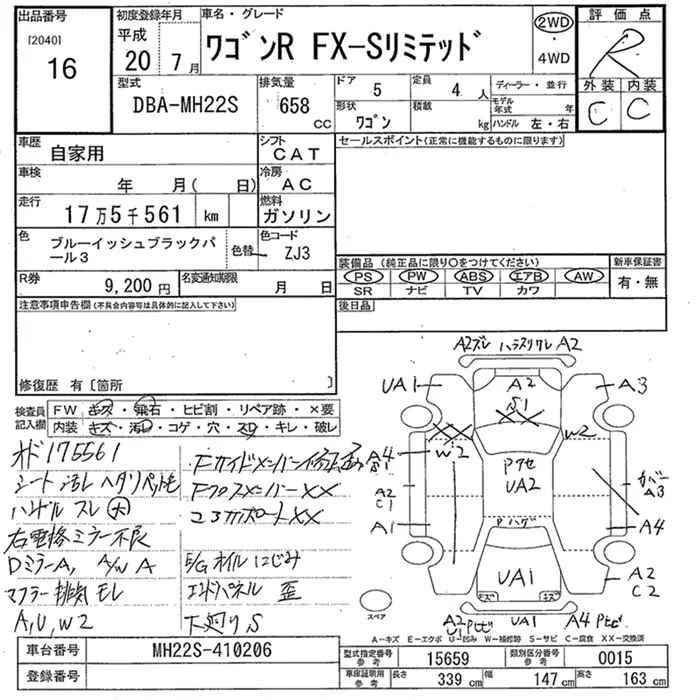 出品番号
[2040]
16
初度登録年月
平成
20 年 7 月
車名・グレード
ワゴンR FX-Sリミテッド
2WD
4WD
評価点
R
外装 内装
C C
型式
DBA-MH22S
排気量
658 cc
ドア 5
定員 4 人
形状 ワゴン
積載 kg
ディーラー・並行
モデル年式 年
ハンドル 左・右
車歴
自家用
シフト
CAT
セールスポイント(正常に機能するものに限ります)
車検
年 月( 日)
冷房
AC
走行
17万5千561 km
燃料
ガソリン
色
ブルーイッシュブラックパール3
色替
色コード
ZJ3
装備品 (純正品に限り○をつけてください)
新車保証書
PS PW ABS エアB AW
有・無
SR ナビ TV カワ
R券
9,200 円
名変通知期限
月 日
後日品
注意事項申告欄(不具合内容は具体的に記入して下さい)
修復歴 有〔箇所 〕
検査員記入欄
FW キズ・飛石・ヒビ割・リペア跡・×要
内装 キズ・汚れ・コゲ・穴・スレ・キレ・破レ
オド175561
シート汚レ ヘタリ
ハンドル スレ 大
右電格ミラー不良
Dミラー A, A/W A
マフラー排気モレ
A, U, W2
Fサイドメンバー
Fクロスメンバー XX
コアサポート XX
E/Gオイルにじみ
エンドパネル 歪
下廻りS
A2ズレ ハラスリワレ A2
UA1 A2 A3
S1
XX XX
A4 W2 W2
Pクセ
UA2
カバー
A3
A2
C1
A1
Pハゲ
A4
UA1
キズ キズ
A2
C2
スペア
A2
U1 Pヒビ UA1 A4 Pヒビ
A-キズ E-エクボ U-凹み W-補修跡 S-サビ C-腐食 XX-交換済
車台番号
MH22S-410206
登録番号
型式指定番号 参考 15659
類別区分番号 参考 0015
車庫証明用 参考
長さ 339 cm 幅 147 cm 高さ 163 cm